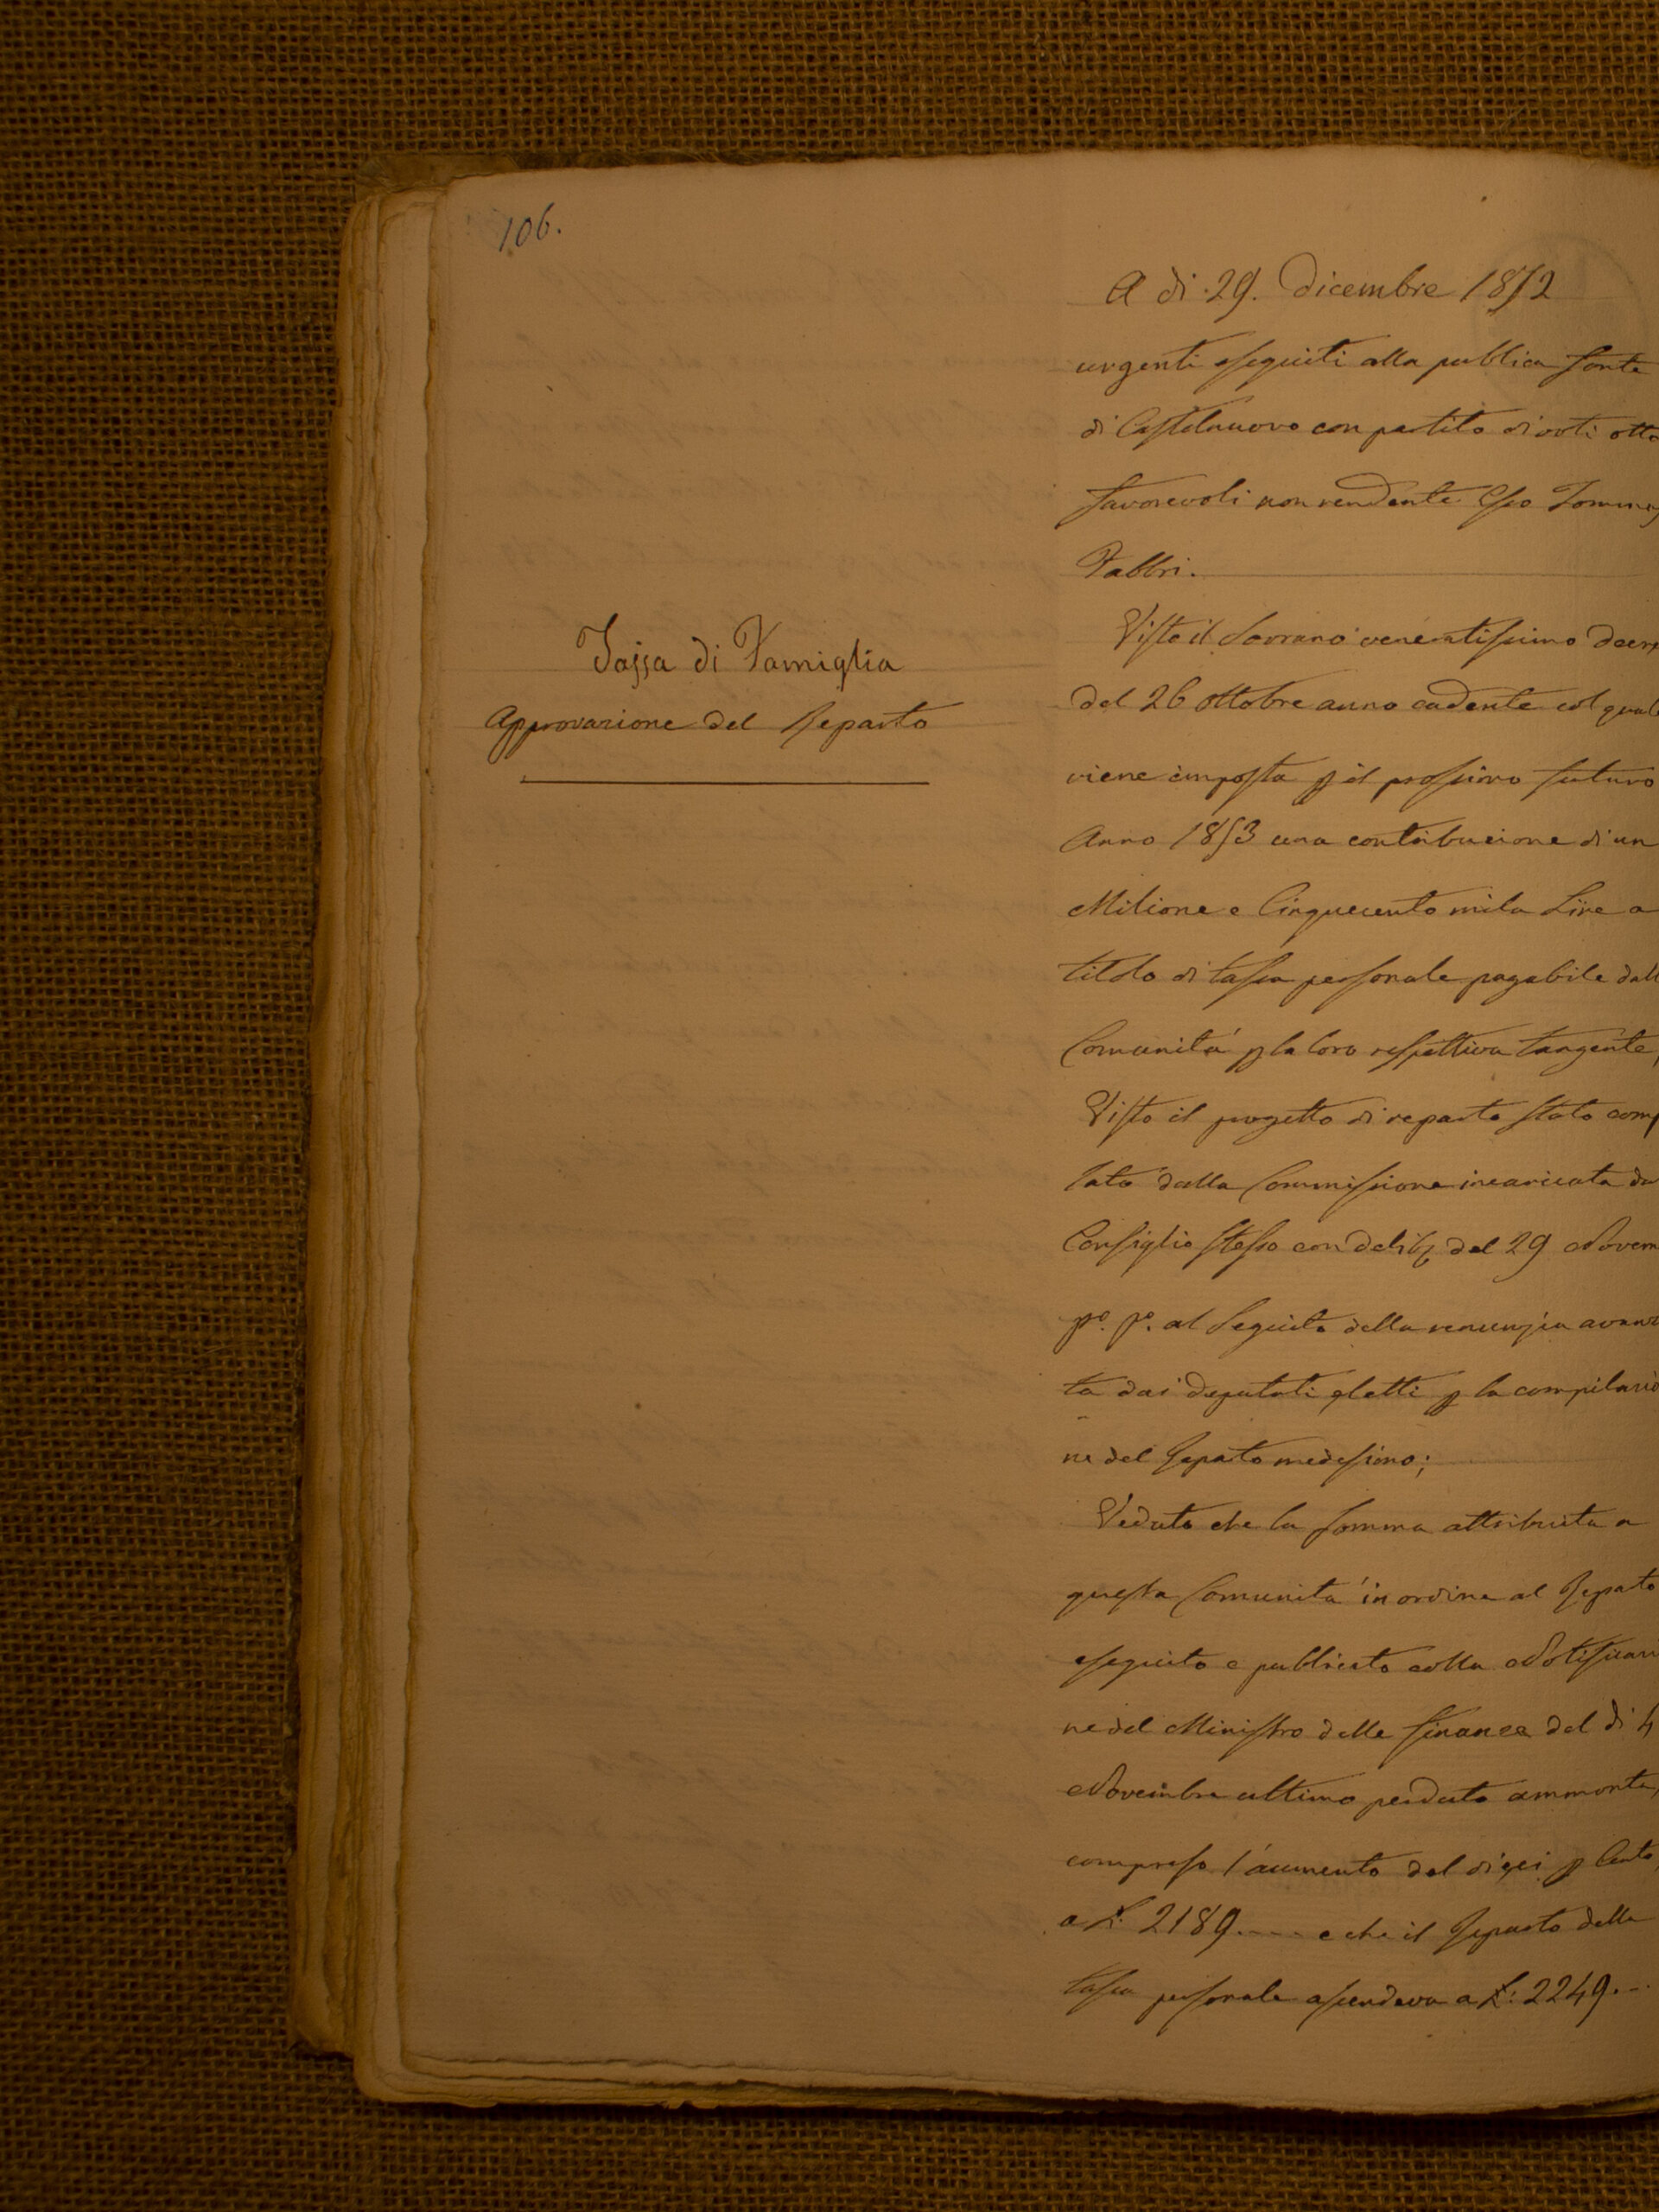 106.
A di 29. Dicembre 1852
urgenti eseguiti alla publica fonte
di Castelnuovo con partito di voti otto
favorevoli non rendente Tommas
Fabbri.
Tassa di Famiglia
Approvazione del Reparto
Visto il Sovrano veneratissimo decre
del 26 ottobre anno cadente col quale
viene imposta p il prossimo futuro
Anno 1853 una contribuzione di un
Milione e Cinquecento mila Lire a
titolo di tassa personale pagabile dall
Comunità p la loro respettiva tangente,
Visto il progetto di reparto stato comp
lato dalla Commissione incaricata da
Consiglio stesso con delib del 29 Novem
po. po. al seguito della renunzia avanz
ta dai deputati eletti p la compilazio
ne del reparto medesimo;
Veduto che la somma attribuita a
questa Comunità in ordine al reparto
eseguito e publicato colla Notificazio
ne del Ministro delle finanze del di 4
Novembre ultimo perduto ammonta,
compreso l'aumento del dieci p Cento,
a L: 2189.--- e che il reparto della
tassa personale ascendeva a L: 2249.--